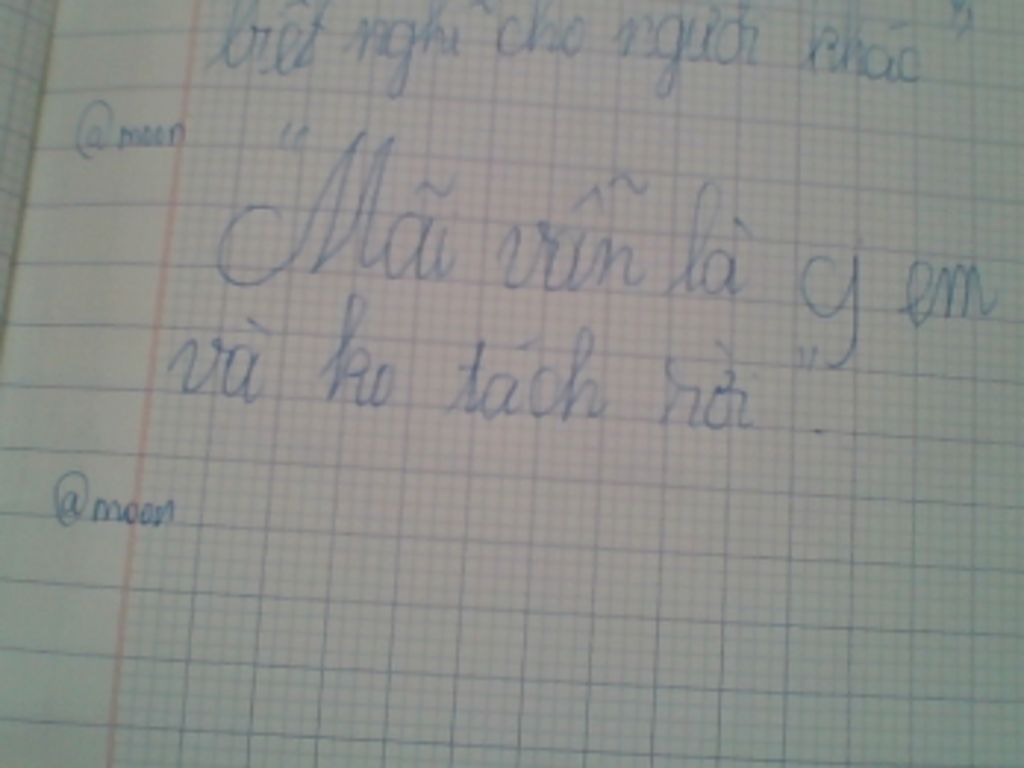 biết nghĩ cho người khác"
@moon
"Mãi vẫn là cy em
và ko tách rời".
@moon